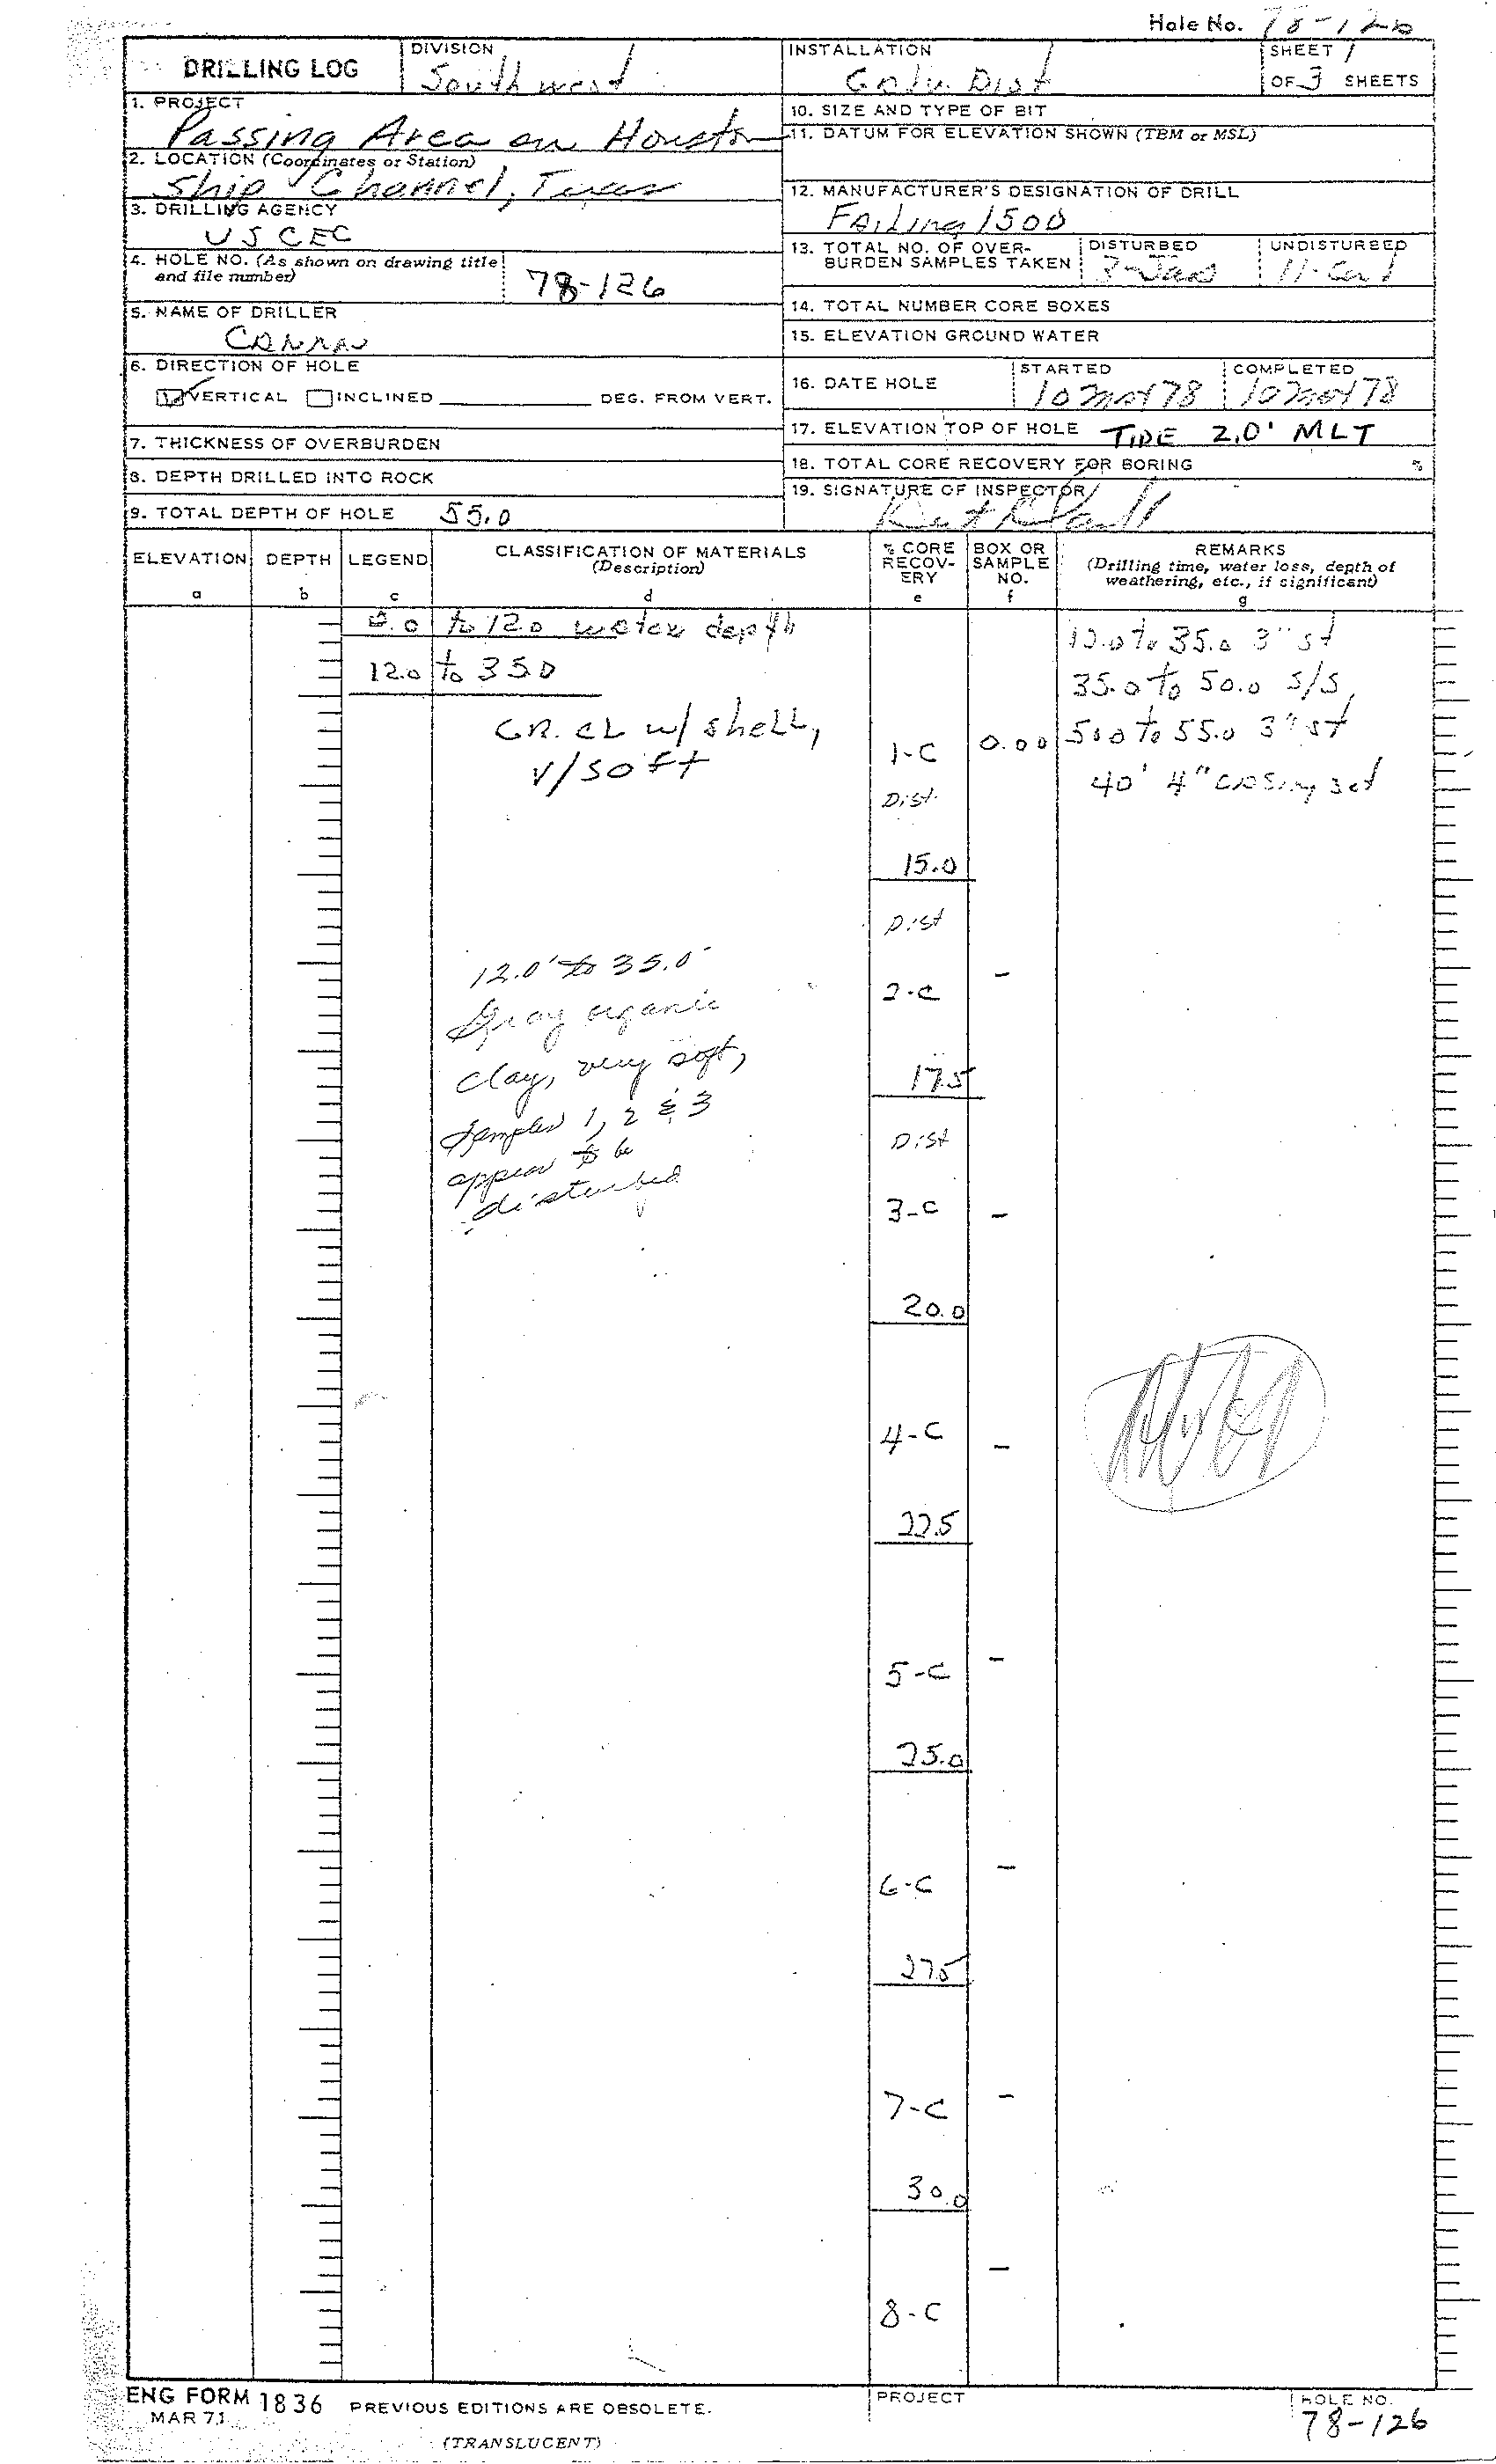 Hole No. 78-126
DRILLING LOG
DIVISION
Southwest
INSTALLATION
Galv. Dist
SHEET 1
OF 3 SHEETS
1. PROJECT
Passing Area on Houston
2. LOCATION (Coordinates or Station)
Ship Channel, Texas
3. DRILLING AGENCY
USCEC
4. HOLE NO. (As shown on drawing title
and file number)
78-126
5. NAME OF DRILLER
6. DIRECTION OF HOLE
VERTICAL INCLINED DEG. FROM VERT.
7. THICKNESS OF OVERBURDEN
8. DEPTH DRILLED INTO ROCK
9. TOTAL DEPTH OF HOLE 55.0
10. SIZE AND TYPE OF BIT
11. DATUM FOR ELEVATION SHOWN (TBM or MSL)
12. MANUFACTURER'S DESIGNATION OF DRILL
Failing 1500
13. TOTAL NO. OF OVER-
BURDEN SAMPLES TAKEN
DISTURBED
3-Jars
UNDISTURBED
14. TOTAL NUMBER CORE BOXES
15. ELEVATION GROUND WATER
16. DATE HOLE
STARTED
COMPLETED
17. ELEVATION TOP OF HOLE TIDE 2.0' MLT
18. TOTAL CORE RECOVERY FOR BORING %
19. SIGNATURE OF INSPECTOR
ELEVATION DEPTH LEGEND CLASSIFICATION OF MATERIALS
(Description)
% CORE
RECOV-
ERY
BOX OR
SAMPLE
NO.
REMARKS
(Drilling time, water loss, depth of
weathering, etc., if significant)
a b c d e f g
0.0 to 12.0 water depth
12.0 to 35.0
GR. CL w/ shell,
v/soft
12.0 to 35.0 3" st
35.0 to 50.0 S/S
50.0 to 55.0 3" st
40' 4" casing set
1-C 0.00
Dist.
15.0
Dist
12.0' to 35.0'
Gray organic
clay, very soft,
Samples 1, 2 & 3
appear to be
disturbed
2-C -
17.5
Dist
3-C -
20.0
4-C -
22.5
5-C -
25.0
6-C -
27.5
7-C -
30.0
8-C -
ENG FORM 1836 PREVIOUS EDITIONS ARE OBSOLETE.
MAR 71
(TRANSLUCENT)
PROJECT
HOLE NO.
78-126